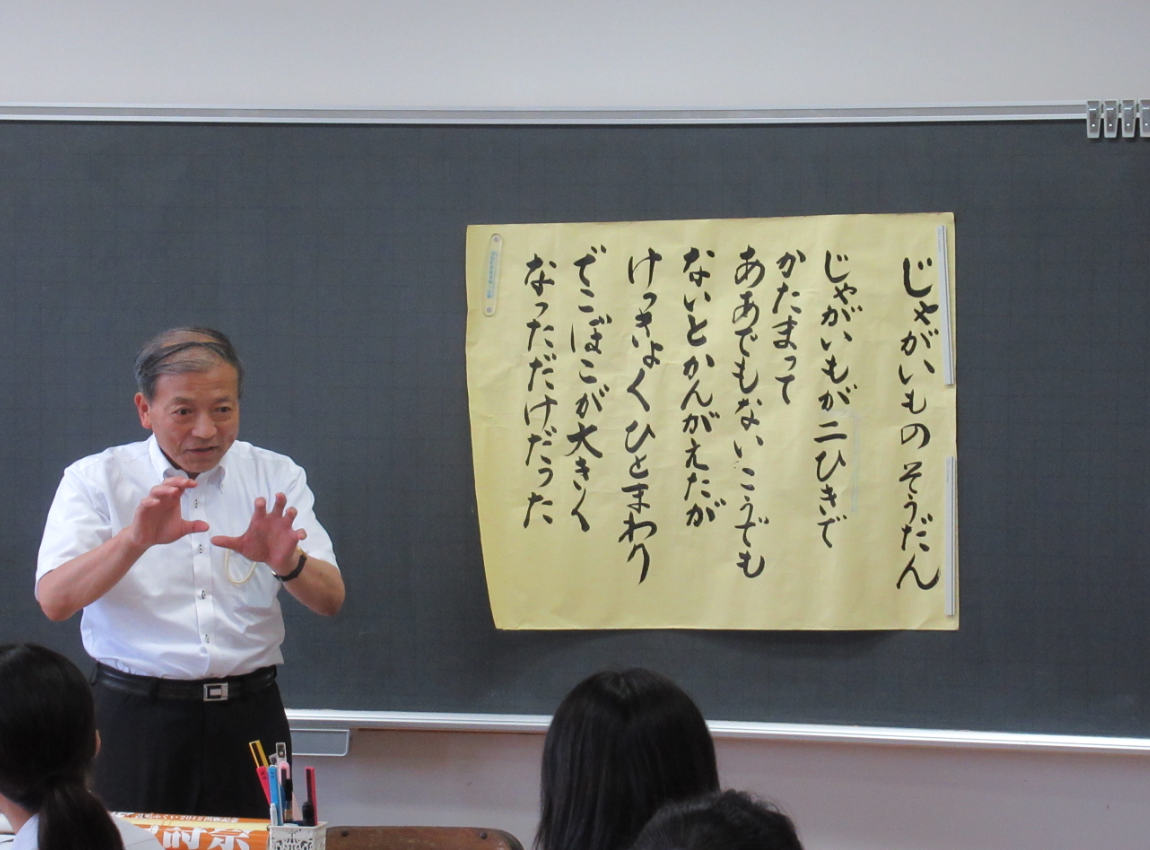 じゃがいものそうだん
じゃがいもが二ひきで
かたまって
ああでもないこうでも
ないとかんがえたが
けっきょくひとまわり
でこぼこが大きく
なっただけだった